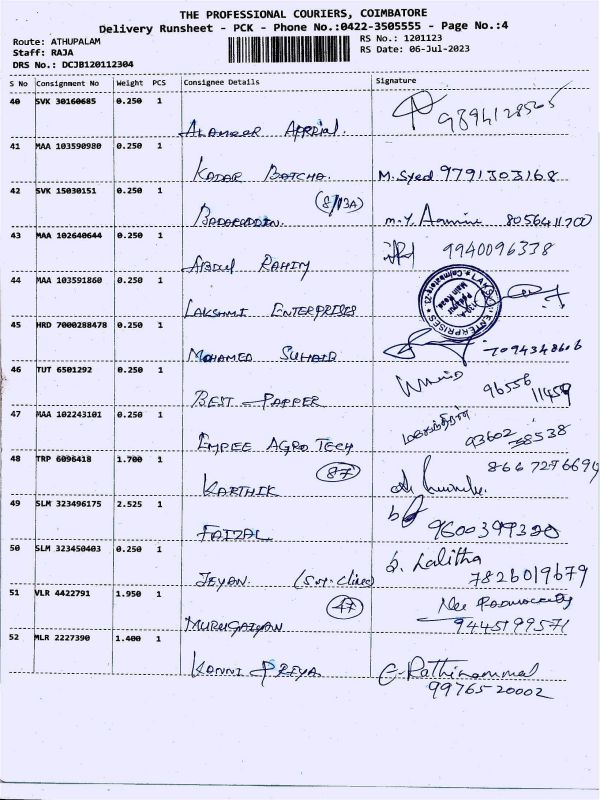 THE PROFESSIONAL COURIERS, COIMBATORE
Delivery Runsheet - PCK - Phone No.:0422-3505555 - Page No.:4
Route: ATHUPALAM
RS No.: 1201123
Staff: RAJA
RS Date: 06-Jul-2023
DRS No.: DCJB120112304
S No Consignment No Weight PCS Consignee Details Signature
40 SVK 30160685 0.250 1
9894128505
41 MAA 103590980 0.250 1
KADAR BATCHA. M.Syed 9791303168
42 SVK 15030151 0.250 1 (8/13A)
BADARUDDIN. 8056411700
43 MAA 102640644 0.250 1
ABDUL RAHIM 9940096338
44 MAA 103591860 0.250 1
LAKSHMI ENTERPRISES
45 HRD 7000288478 0.250 1
MOHAMED SUHAIB 7094348606
46 TUT 6501292 0.250 1
BEST PAPPER 96556 11459
47 MAA 102243101 0.250 1
EMPEE AGRO TECH 93602 38538
48 TRP 6096418 1.700 1 87 8667276694
KARTHIK
49 SLM 323496175 2.525 1
FAIZAL 9600399320
50 SLM 323450403 0.250 1
JEYAN. b. Lalitha
7826019679
51 VLR 4422791 1.950 1 47
MURUGAIYAN 9445199571
52 MLR 2227390 1.400 1
KANNI PRIYA C. Rathinammal
9976520002